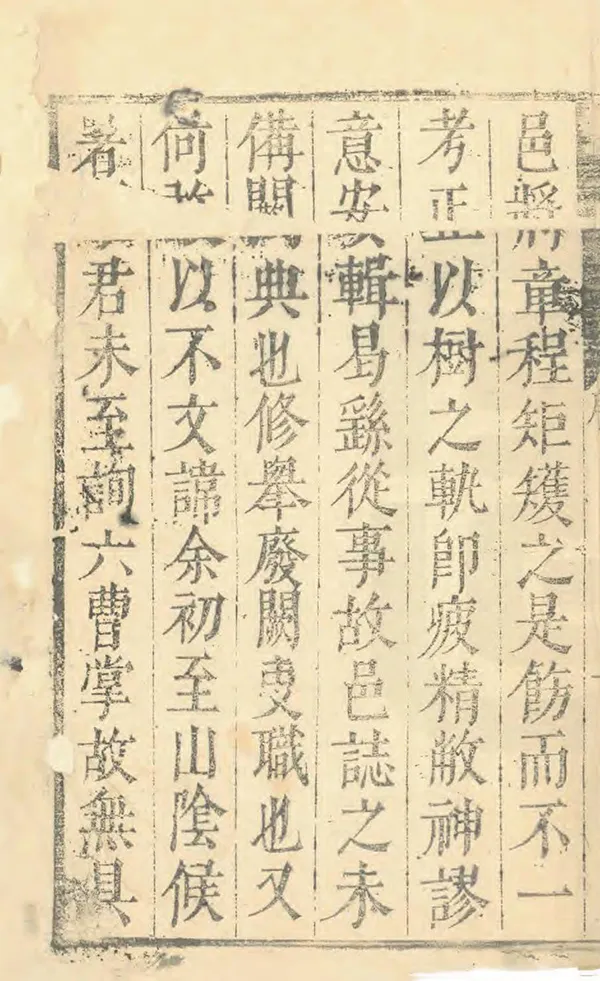 邑將章程矩矱之是飭而不一
考正以樹之軌即疲精敝神謬
意安輯曷繇從事故邑誌之未
備闕典也修舉廢闕叓職也又
何以不文諱余初至山陰候
著君未至詢六曹掌故無具